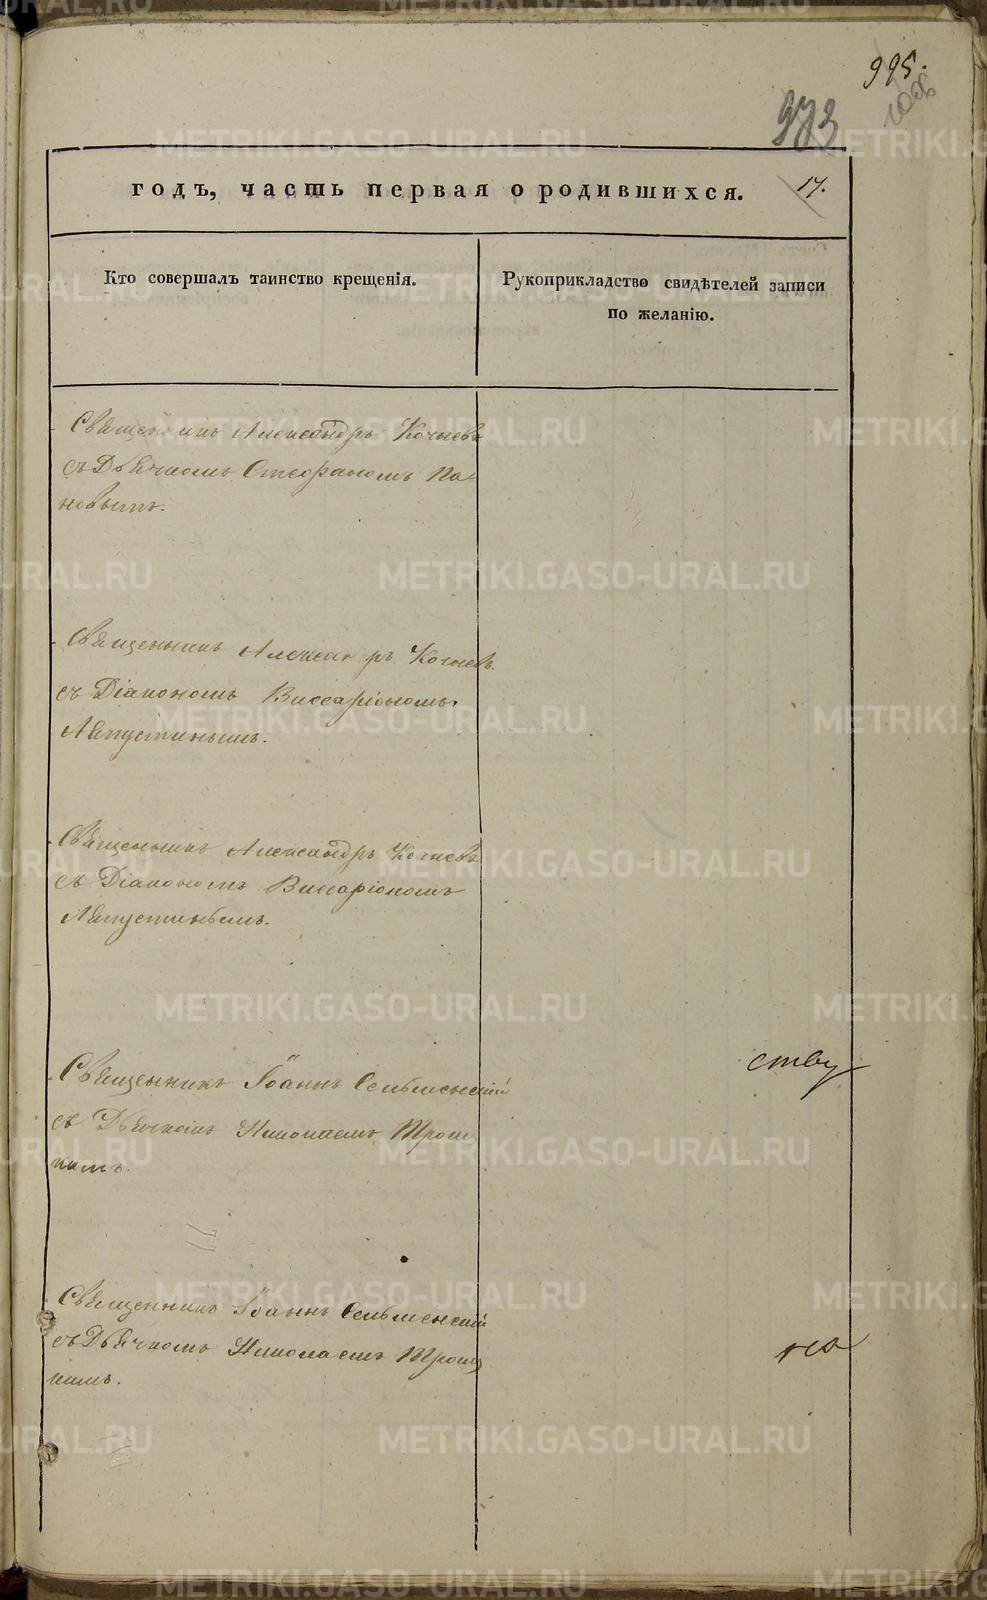 995.
973
годъ, часть первая о родившихся.
17.
Кто совершалъ таинство крещенія.
Рукоприкладство свидѣтелей записи
по желанію.
Священникъ Александръ Кочневъ
съ Дьячкомъ Стефаномъ По-
повымъ.
Священникъ Александръ Кочневъ
съ Діакономъ Виссаріономъ
Августинымъ.
Священникъ Александръ Кочневъ
съ Діакономъ Виссаріономъ
Августинымъ.
Священникъ Іоаннъ Сельменскій
ству
съ Дьячкомъ Николаемъ Троиц
кимъ.
Священникъ Іоаннъ Сельменскій
съ Дьячкомъ Николаемъ Троиц
кимъ.
METRIKI.GASO-URAL.RU